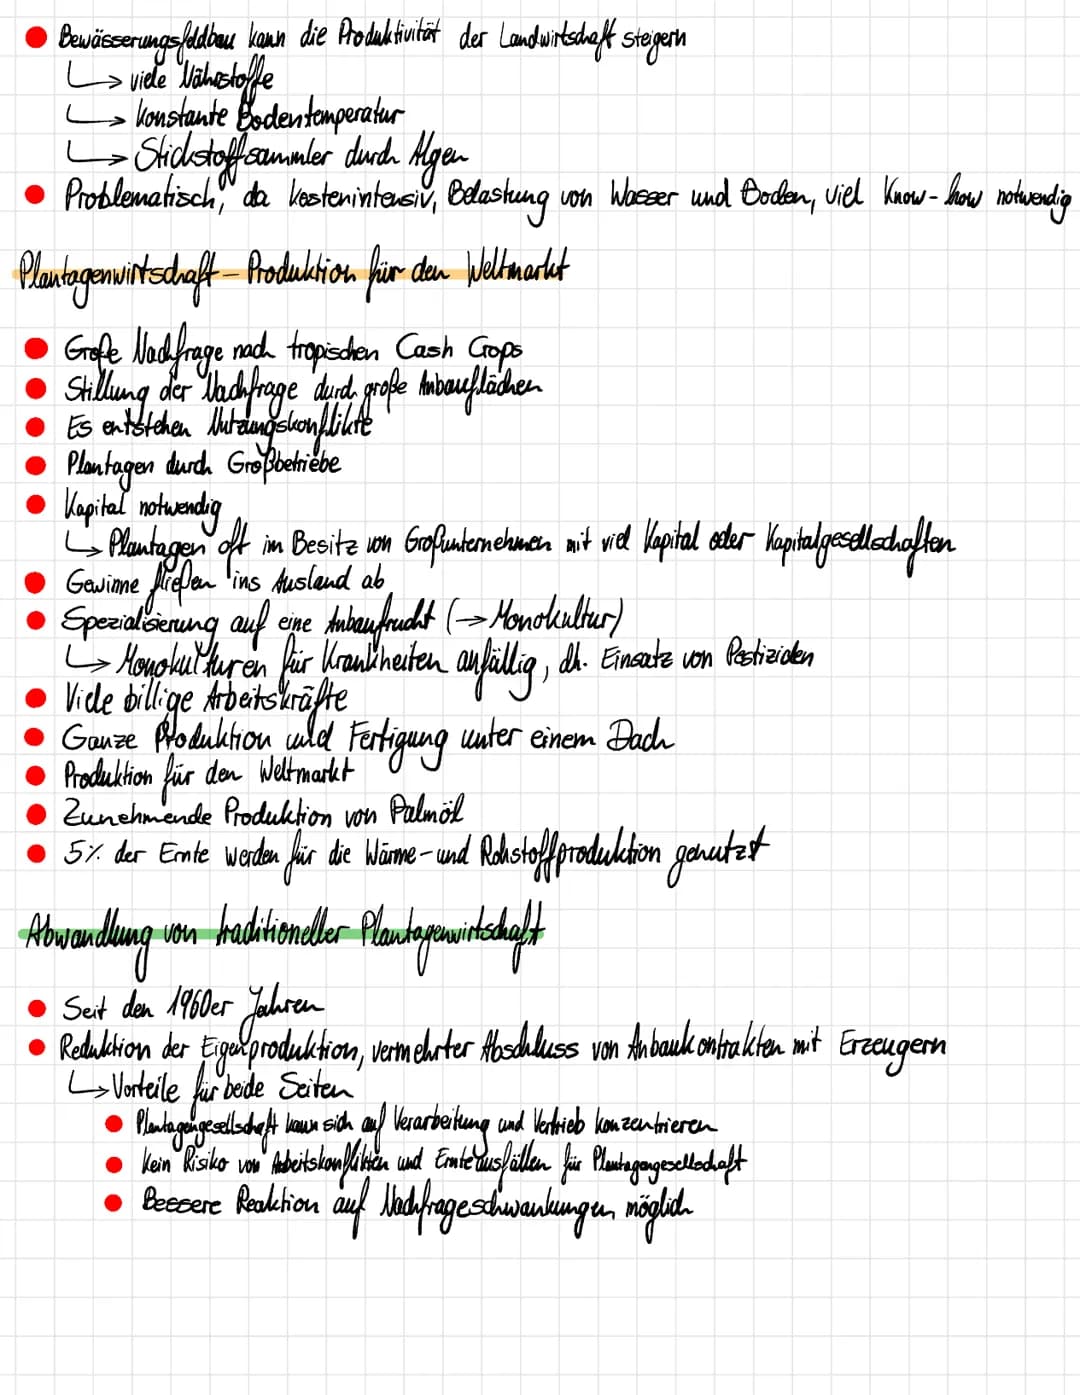 ● Bewässerungsfeldbau kann die Produktivität der Landwirtschaft steigern
↳ viele Nährstoffe
↳ konstante Bodentemperatur
↳ Stickstoffsammler durch Algen
● Problematisch, da kostenintensiv, Belastung von Wasser und Boden, viel Know-how notwendig
Plantagenwirtschaft – Produktion für den Weltmarkt
● Große Nachfrage nach tropischen Cash Crops
● Stillung der Nachfrage durch große Anbauflächen
● Es entstehen Nutzungskonflikte
● Plantagen durch Großbetriebe
● Kapital notwendig
↳ Plantagen oft im Besitz von Großunternehmen mit viel Kapital oder Kapitalgesellschaften
● Gewinne fließen ins Ausland ab
● Spezialisierung auf eine Anbaufrucht (→ Monokultur)
↳ Monokulturen für Krankheiten anfällig, dh. Einsatz von Pestiziden
● Viele billige Arbeitskräfte
● Ganze Produktion und Fertigung unter einem Dach
● Produktion für den Weltmarkt
● Zunehmende Produktion von Palmöl
● 5% der Ernte werden für die Wärme- und Rohstoffproduktion genutzt
Abwandlung von traditioneller Plantagenwirtschaft
● Seit den 1960er Jahren
● Reduktion der Eigenproduktion, vermehrter Abschluss von Anbaukontrakten mit Erzeugern
↳ Vorteile für beide Seiten
● Plantagengesellschaft kann sich auf Verarbeitung und Vertrieb konzentrieren
● Kein Risiko von Arbeitskonflikten und Ernteausfällen für Plantagengesellschaft
● Bessere Reaktion auf Nachfrageschwankungen möglich